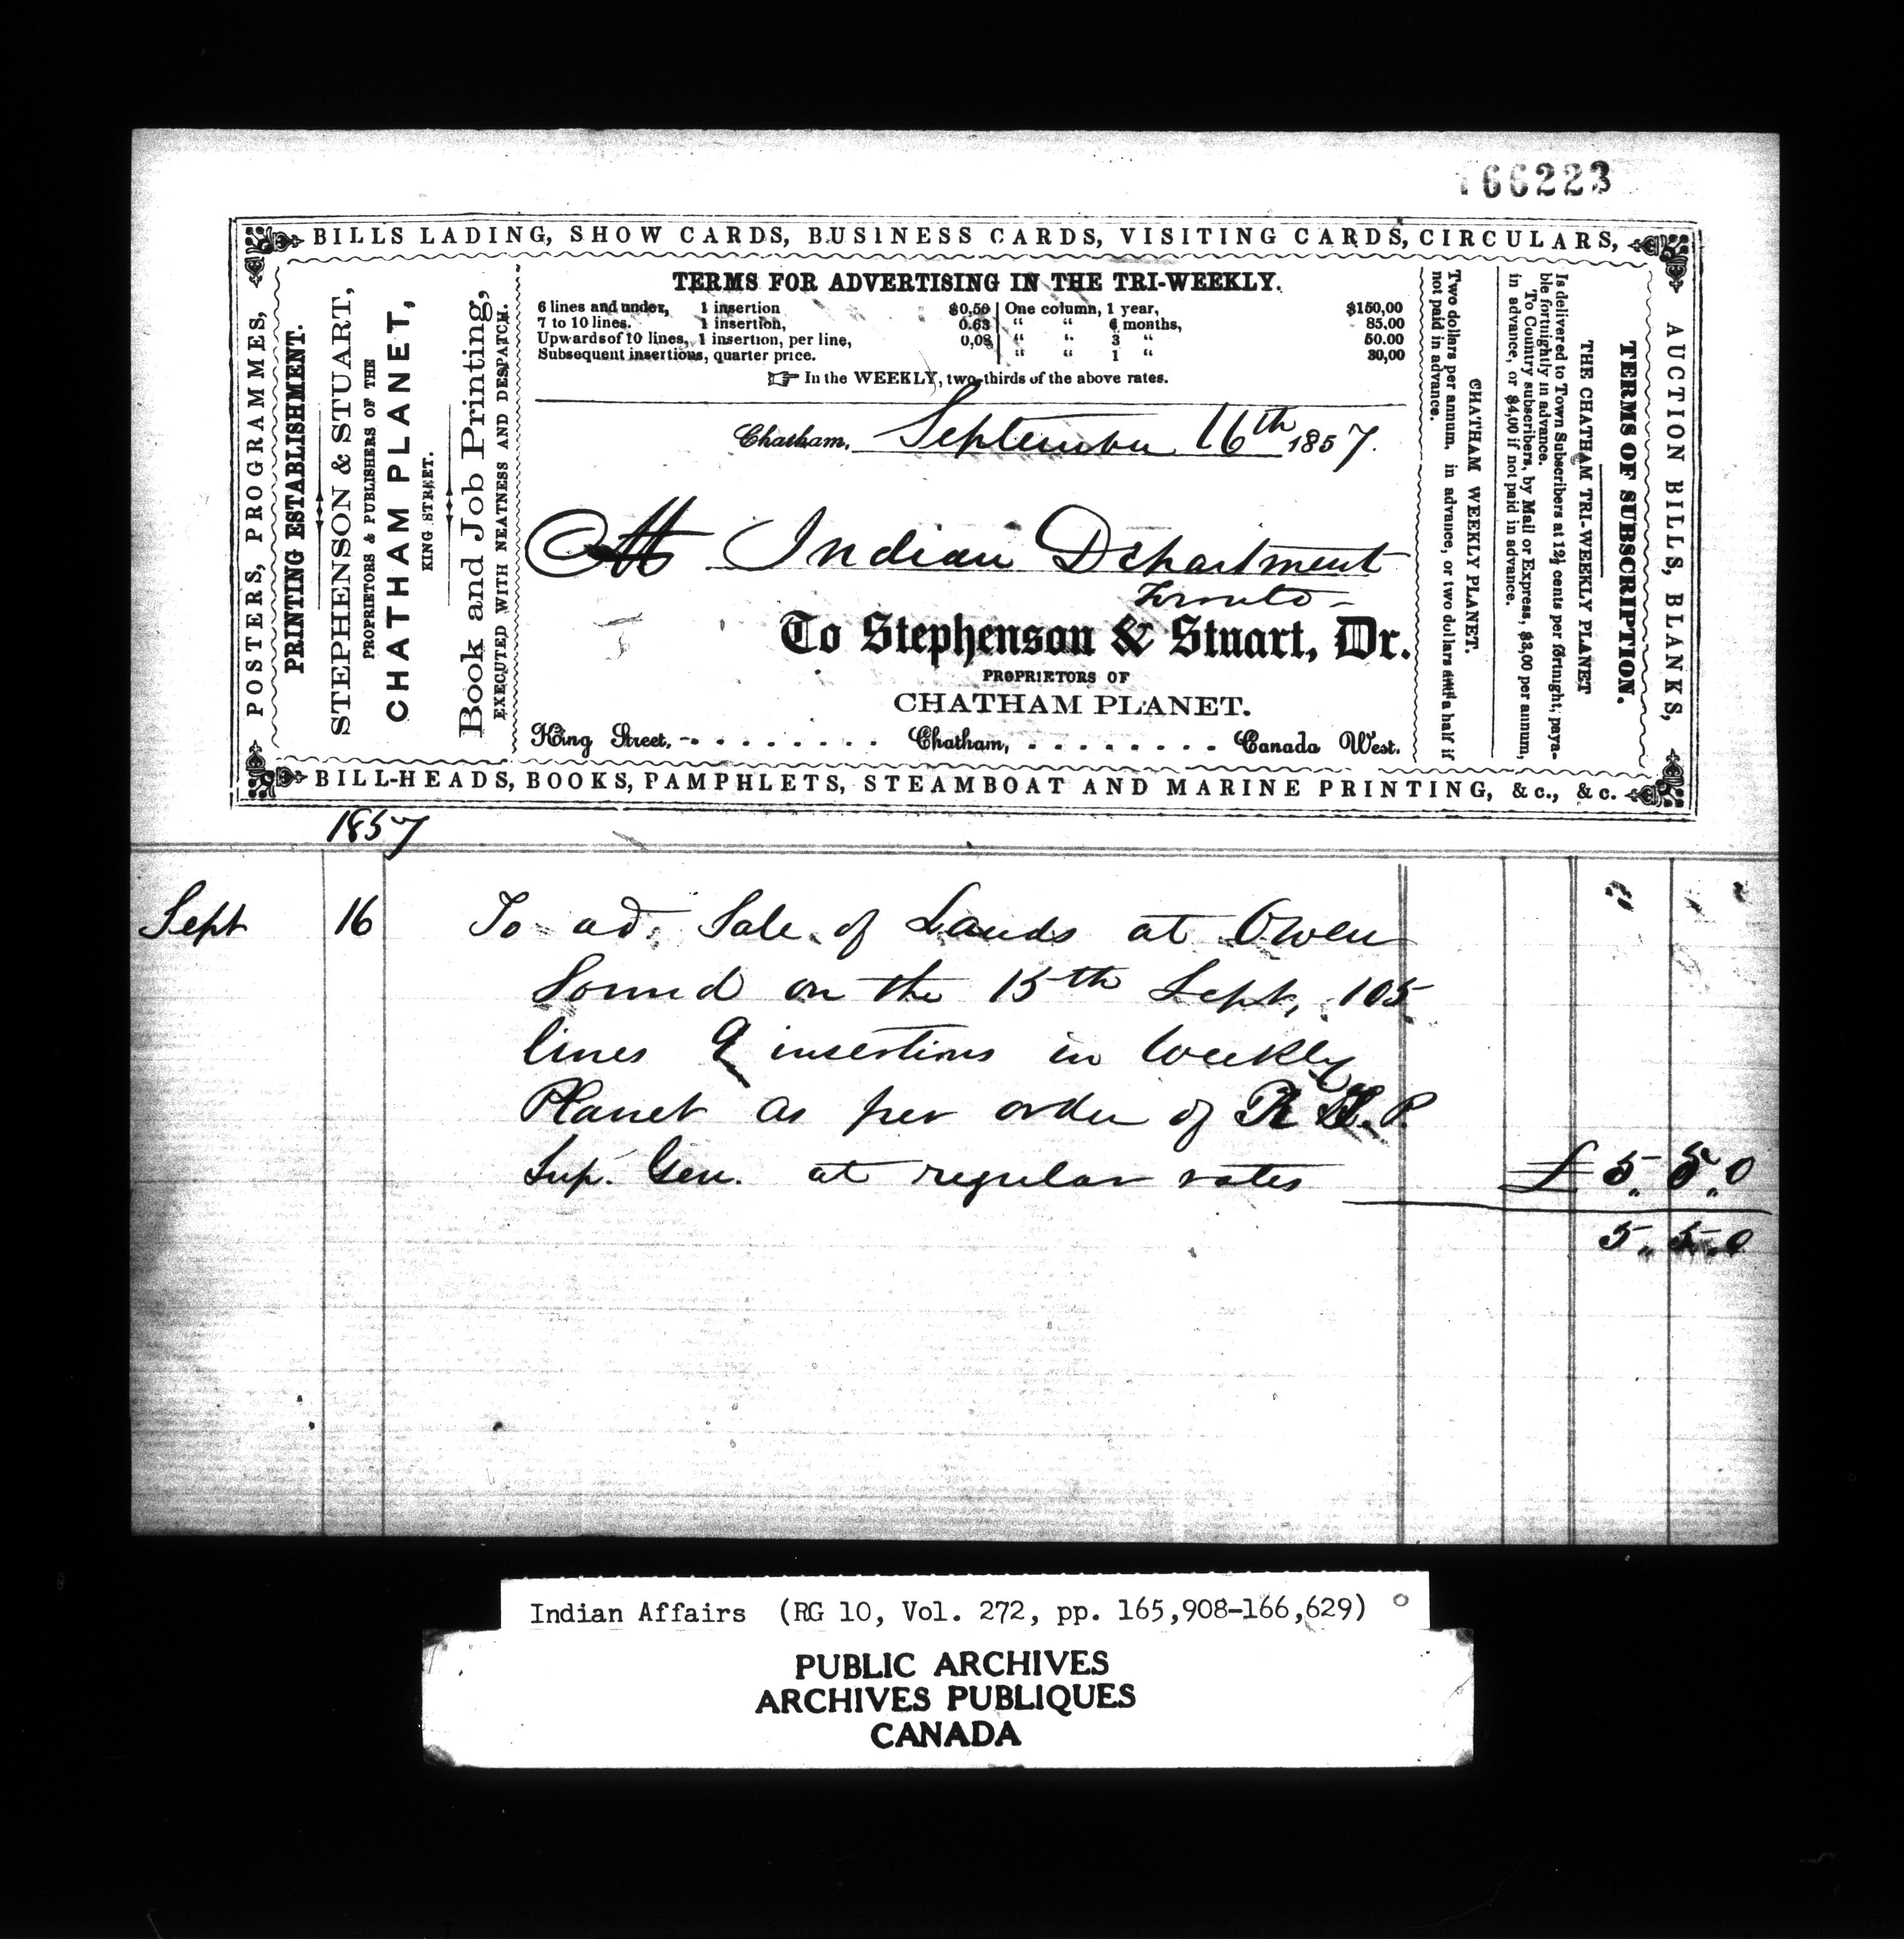 166223
BILLS LADING, SHOW CARDS, BUSINESS CARDS, VISITING CARDS, CIRCULARS,
POSTERS, PROGRAMMES,
PRINTING ESTABLISHMENT.
STEPHENSON & STUART,
PROPRIETORS & PUBLISHERS OF THE
CHATHAM PLANET,
KING STREET.
Book and Job Printing,
EXECUTED WITH NEATNESS AND DESPATCH.
TERMS FOR ADVERTISING IN THE TRI-WEEKLY.
6 lines and under, 1 insertion $0,50 One column, 1 year, $150,00
7 to 10 lines. 1 insertion, 0.63 " " 6 months, 85.00
Upwards of 10 lines, 1 insertion, per line, 0,08 " " 3 " 50.00
Subsequent insertions, quarter price. " " 1 " 30,00
☞ In the WEEKLY, two-thirds of the above rates.
Chatham, September 16th 1857.
Indian Department
Toronto -
To Stephenson & Stuart, Dr.
PROPRIETORS OF
CHATHAM PLANET.
King Street, Chatham, Canada West.
AUCTION BILLS, BLANKS,
TERMS OF SUBSCRIPTION.
THE CHATHAM TRI-WEEKLY PLANET
Is delivered to Town Subscribers at 12½ cents per fortnight, paya-
ble fortnightly in advance.
To Country subscribers, by Mail or Express, $3,00 per annum,
in advance, or $4,00 if not paid in advance.
CHATHAM WEEKLY PLANET.
Two dollars per annum. in advance, or two dollars and a half if
not paid in advance.
BILL-HEADS, BOOKS, PAMPHLETS, STEAMBOAT AND MARINE PRINTING, &c., &c.
1857
Sept 16 To ad. Sale of Lands at Owen
Sound on the 15th Sept, 105
lines 9 insertions in Weekly
Planet as per order of R P.
Sup. Gen. at regular rates £ 5,, 5,, 0
5,, 5,, 0
Indian Affairs (RG 10, Vol. 272, pp. 165,908-166,629)
PUBLIC ARCHIVES
ARCHIVES PUBLIQUES
CANADA